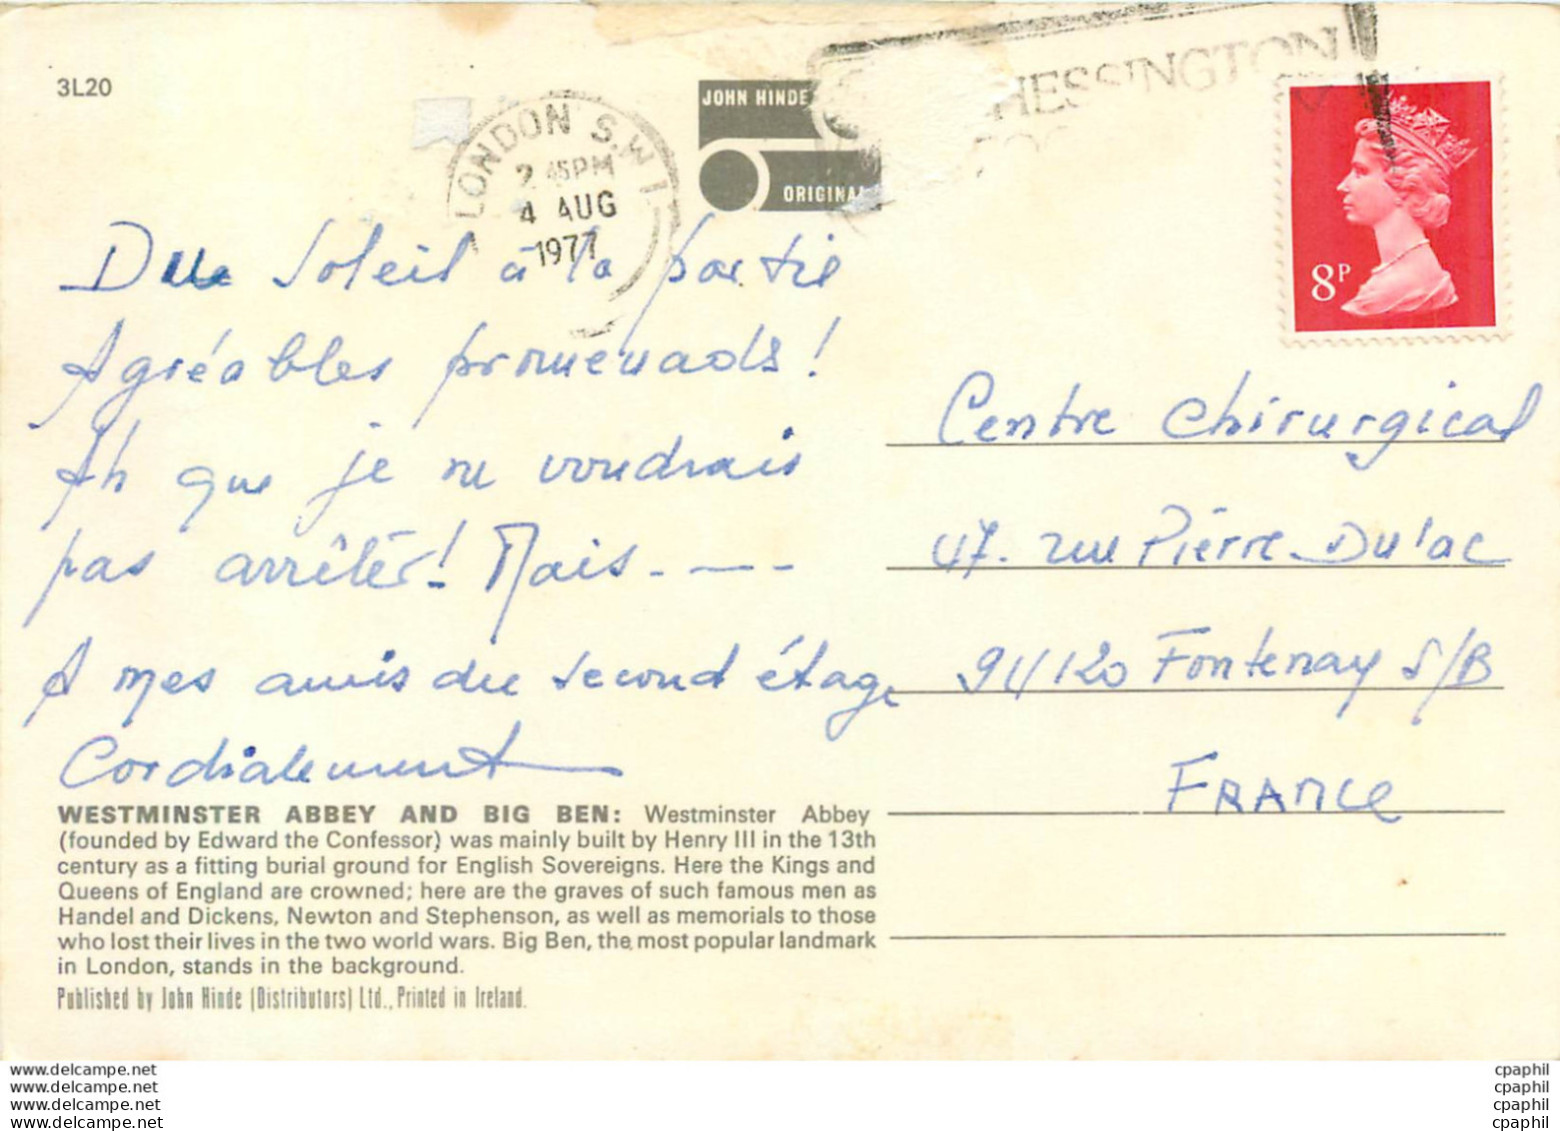 3L20
LONDON S.W.1
2 45PM
4 AUG
1977
JOHN HINDE
ORIGINAL
HESSINGTON
8P
Du Soleil à la partie
Agréables promenads!
Ah que je ne voudrais
pas arrêter! Mais - - - -
A mes amis du second étage
Cordialement
Centre Chirurgical
47. rue Pierre Du'ac
94120 Fontenay S/B
FRANCE
WESTMINSTER ABBEY AND BIG BEN: Westminster Abbey
(founded by Edward the Confessor) was mainly built by Henry III in the 13th
century as a fitting burial ground for English Sovereigns. Here the Kings and
Queens of England are crowned; here are the graves of such famous men as
Handel and Dickens, Newton and Stephenson, as well as memorials to those
who lost their lives in the two world wars. Big Ben, the most popular landmark
in London, stands in the background.
Published by John Hinde (Distributors) Ltd., Printed in Ireland.
www.delcampe.net
www.delcampe.net
www.delcampe.net
www.delcampe.net
cpaphil
cpaphil
cpaphil
cpaphil